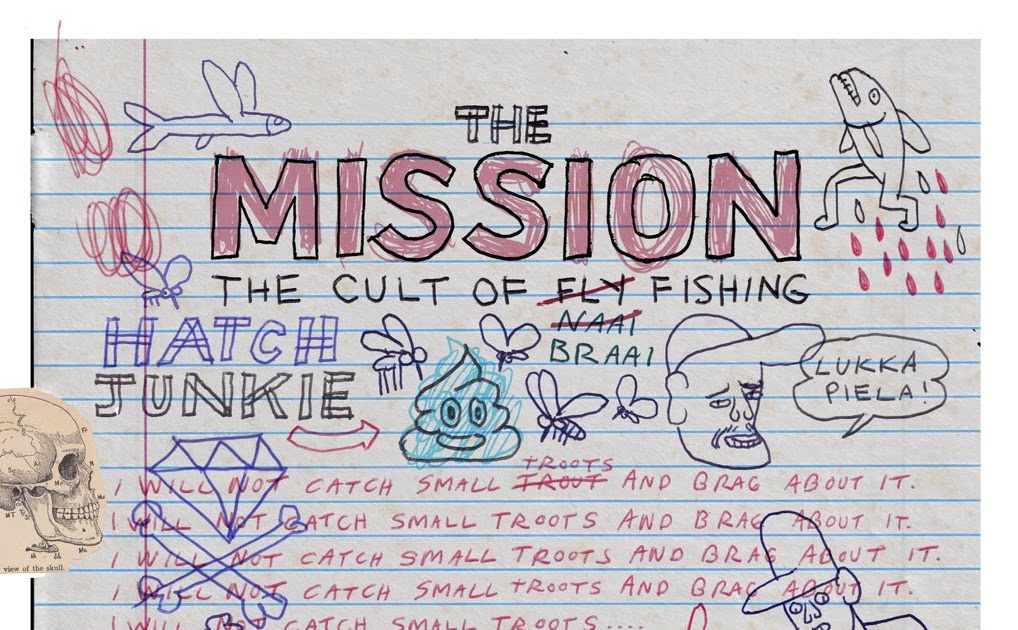 THE
MISSION
THE CULT OF FLY FISHING
NAAI
BRAAI
HATCH
JUNKIE
LUKKA
PIELA!
TROOTS
I WILL NOT CATCH SMALL TROUT AND BRAG ABOUT IT.
I WILL NOT CATCH SMALL TROOTS AND BRAG ABOUT IT.
I WILL NOT CATCH SMALL TROOTS AND BRAG ABOUT IT.
I WILL NOT CATCH SMALL TROOTS AND BRAG ABOUT IT.
I WILL NOT CATCH SMALL TROOTS....
view of the skull.